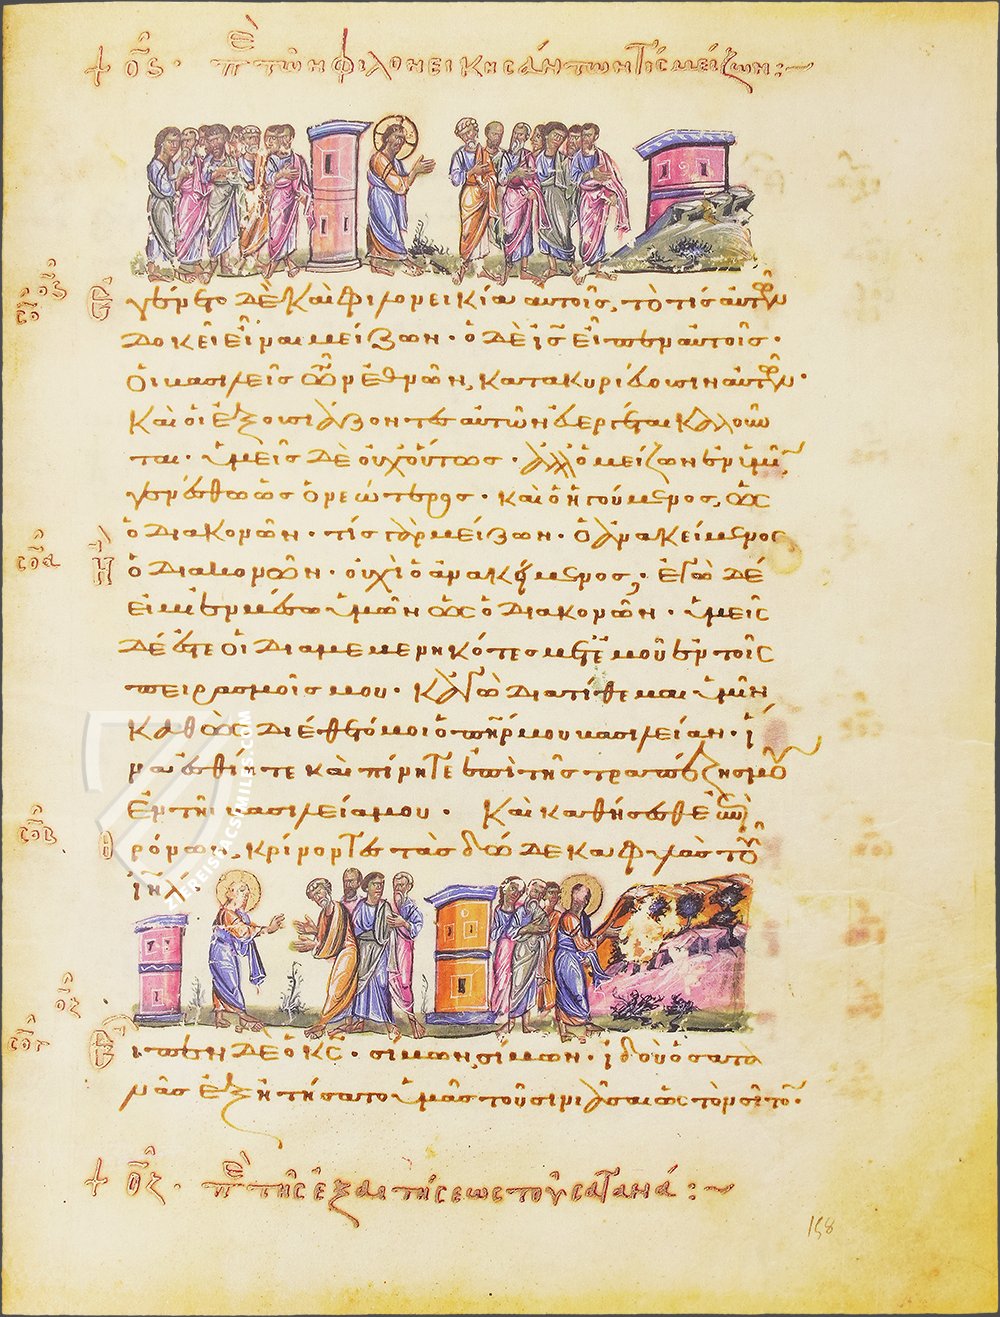 + ος · πε των φιλονεικησάντων τίς μείζων :~
Ἐγένετο δὲ καὶ φιλονεικία αὐτοῖς, τὸ τίς αὐτῶν
δοκεῖ εἶναι μείζων · ὁ δὲ ις εἶπεν αὐτοῖς ·
Οἱ βασιλεῖς τῶν ἐθνῶν, κατακυριεύουσιν αὐτῶν ·
Καὶ οἱ ἐξουσιάζοντες αὐτῶν εὐεργέται καλοῦν
ται · ὑμεῖς δὲ οὐχ οὕτως · ἀλλ ὁ μείζων ἐν ὑμῖν
γενέσθω ὡς ὁ νεώτερος · καὶ ὁ ἡγούμενος, ὡς
ὁ διακονῶν · τίς γὰρ μείζων · ὁ ἀνακείμενος
ἢ ὁ διακονῶν · οὐχὶ ὁ ἀνακείμενος, · ἐγὼ δέ
εἰμι ἐν μέσω ὑμῶν ὡς ὁ διακονῶν · ὑμεῖς
δέ ἐστε οἱ διαμεμενηκότες μετ ἐμοῦ ἐν τοῖς
πειρασμοῖς μου · Κἀγὼ διατίθεμαι ὑμῖν
Καθὼς διέθετό μοι ὁ πηρ μου βασιλείαν · ἵ
να ἐσθίητε καὶ πίνητε ἐπὶ τῆς τραπέζης μου
ἐν τῆι βασιλεία μου · Καὶ καθήσεσθε ἐπὶ
θρόνων, κρίνοντες τὰς δώδεκα φυλὰς τοῦ
ιηλ ·
Εἶπεν δὲ ὁ κς · σίμων, σίμων · ἰδοὺ ὁ σατα
νᾶς ἐξητήσατο ὑμᾶς τοῦ σινιάσαι ὡς τὸν σῖτον ·
+ οζ · πε τῆς ἐξαιτήσεως τοῦ σατανᾶ :~
158
ZIEREIS FACSIMILES.COM